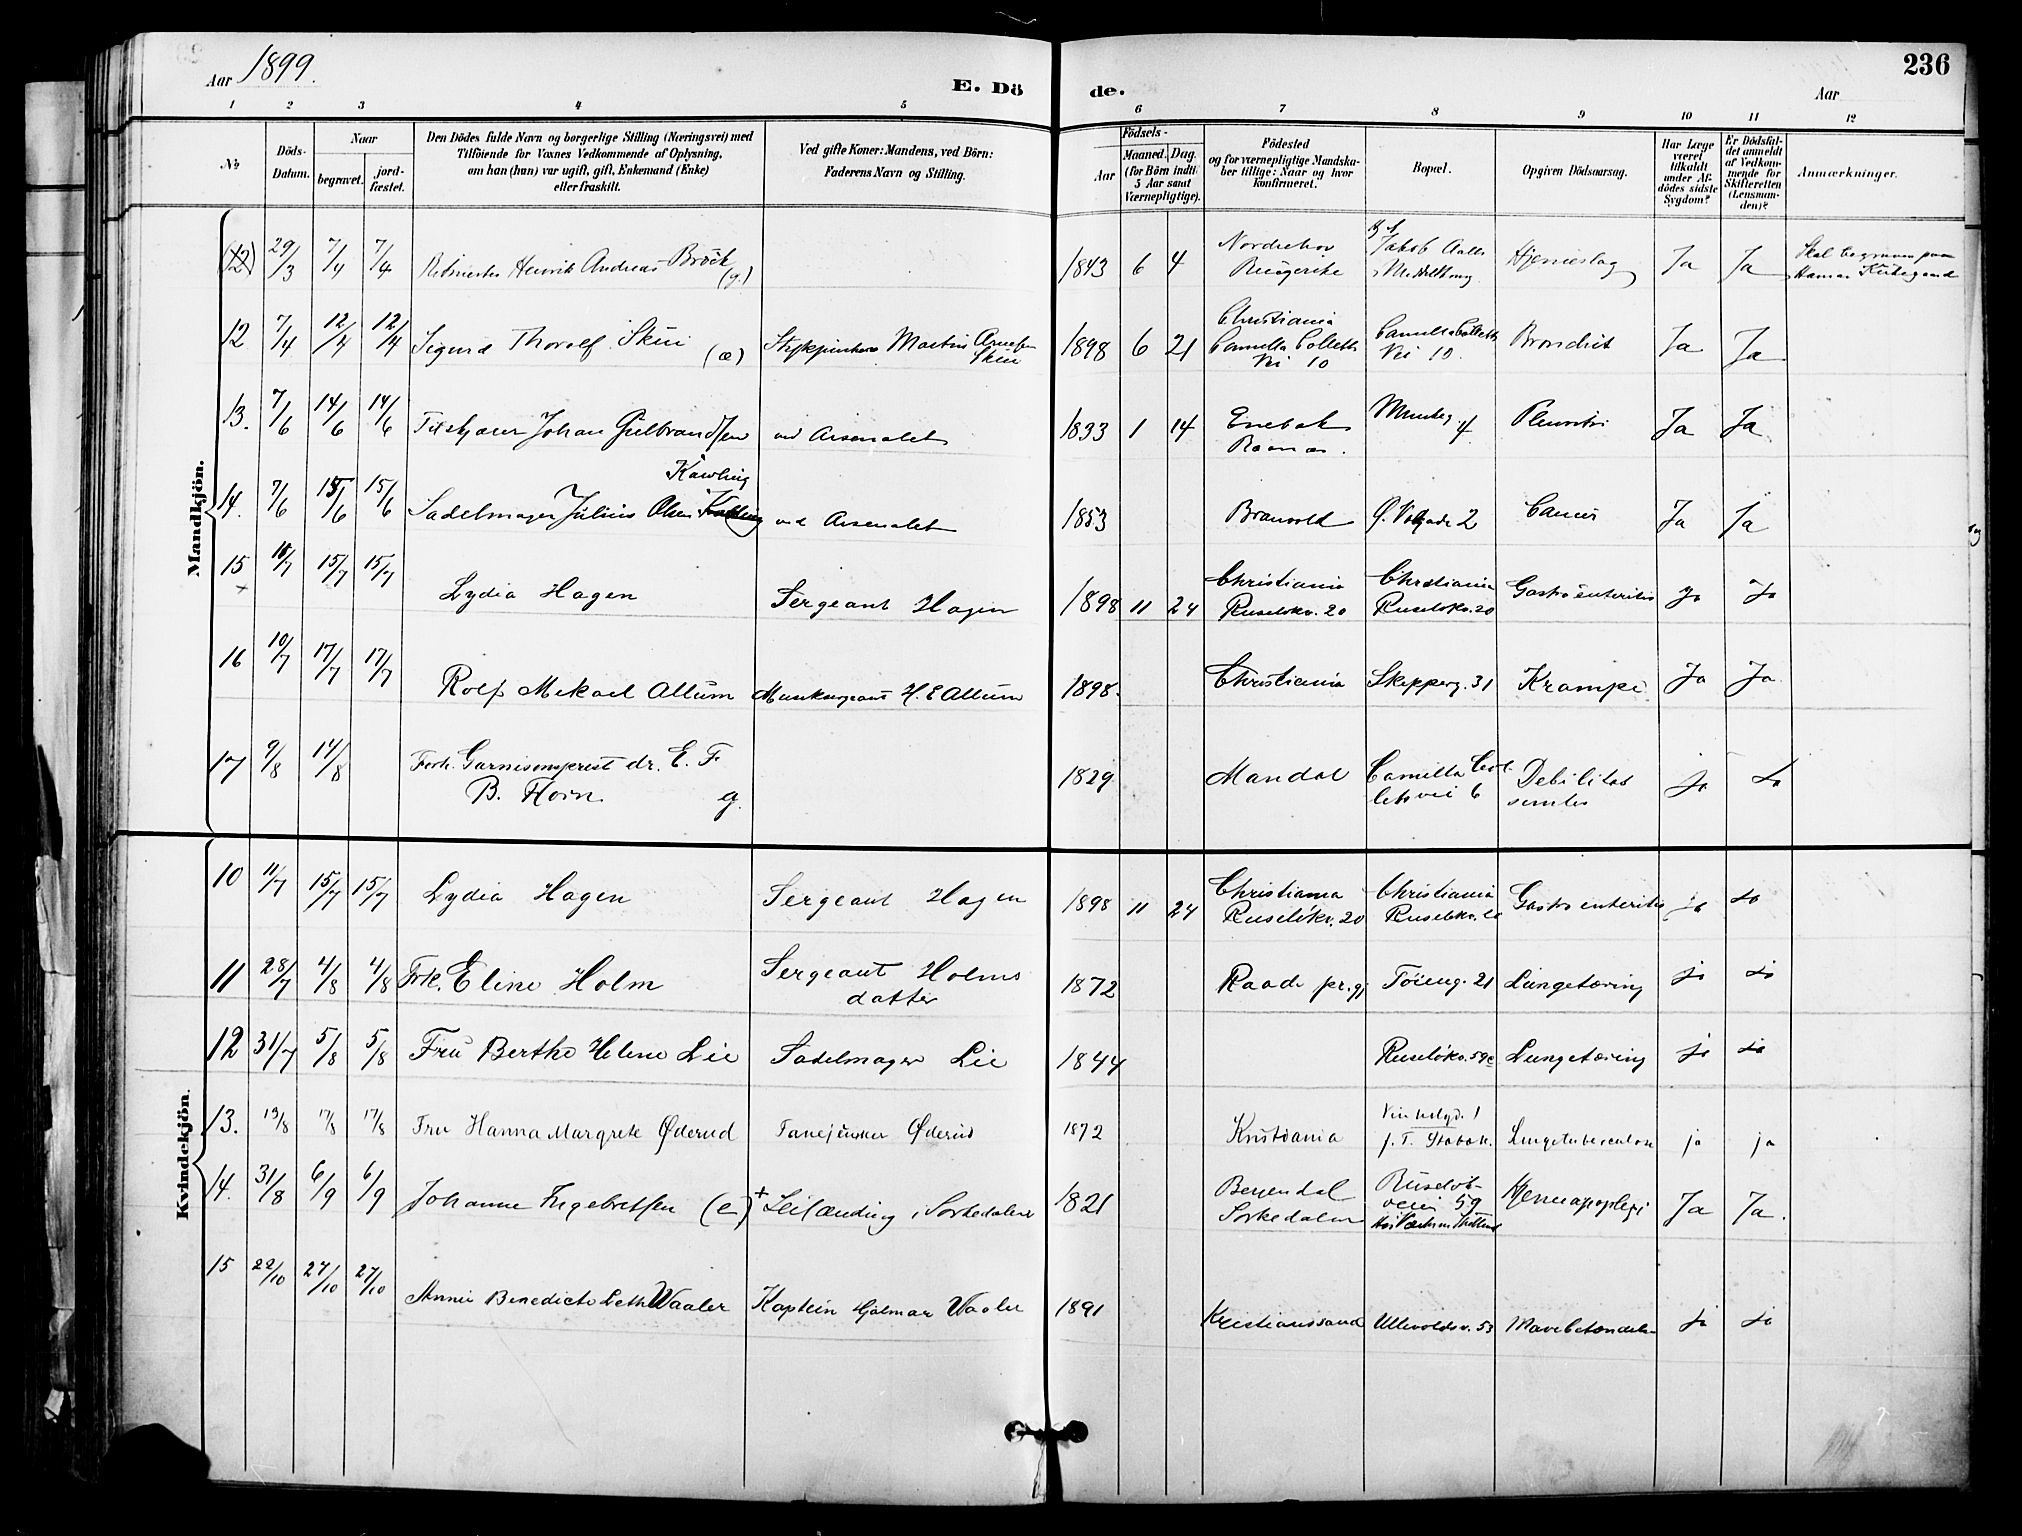 236
Aar 1899.
E. Dö de.
Aar
1 2 3 4 5 6 7 8 9 10 11 12
No.
Döds-Datum.
Naar
begravet.
jord-fæstet.
Den Dödes fulde Navn og borgerlige Stilling (Næringsvei) med
Tilföiende for Voxnes Vedkommende af Oplysning,
om han (hun) var ugift, gift, Enkemand (Enke)
eller fraskilt.
Ved gifte Koner: Mandens, ved Börn:
Faderens Navn og Stilling.
Födsels-
Aar
Maaned. Dag.
(for Börn indtil
5 Aar samt
Værnepligtige).
Födested
og for værnepligtige Mandska-
ber tillige: Naar og hvor
konfirmeret.
Bopæl.
Opgiven Dödsaarsag.
Har Læge
været
tilkaldt
under Af-
dödes sidste
Sygdom?
Er Dödsfal-
det anmeldt
af Vedkom-
mende for
Skifteretten
(Lensman-
den)?
Anmærkninger.
Mandkjön.
(12) 29/3 7/4 7/4 Ritmester Henrik Andreas Bröck (g.) 1843 6 4 Nordrehov Ringerike Jakob Aalls Hjerneslag Ja Ja Skal begraves paa Hamar Kirkegaard
12 7/4 12/4 12/4 Sigurd Thorolf Skui (æ) Martin Arnesen Skui 1898 6 21 Christiania Camilla Colletts Vei 10 Camilla Colletts Vei 10. Bronchit Ja Ja
13. 7/6 14/6 14/6 Johan Gulbrandsen ved Arsenalet 1833 1 14 Enebak 4 Pleuritis Ja Ja
14. 7/6 15/6 15/6 Sadelmager Julius Olsen Kawling ved Arsenalet 1853 Branvold 2 Cancer Ja Ja
15 15/7 15/7 Lydia Hagen Sergeant Hagen 1898 11 24 Christiania Ruseløkv. 20 Christiania Ruseløkv. 20 Gastroenteritis Ja Ja
16 10/7 17/7 17/7 Rolf Mikael Allum H. E Allum 1898. Christiania Skipperg. 31 Krampe Ja Ja
17 9/8 14/8 Forh. Garnisonsprest dr. E. F. B. Horn g. 1829 Mandal Camilla Collets vei 6 Debilitas senilis ja ja
Kvindekjön.
10 11/7 15/7 15/7 Lydia Hagen Sergeant Hagen 1898 11 24 Christiania Ruseløkv. 20 Christiania Ruseløkv. 20 Gastroenteritis ja ja
11 28/7 4/8 4/8 Frk. Eline Holm Sergeant Holms datter 1872 Raade pr.gj. Töieng. 21 Lungetæring ja ja
12 31/7 5/8 5/8 Fru Berthe Helene Lie Sadelmager Lie 1844 Ruseløkv. 59c Lungetæring ja ja
13. 13/8 17/8 17/8 Fru Hanna Margrete Øderud Øderud 1872 Kristiania Lungetuberculose ja ja
14. 31/8 6/9 6/9 Johanne Ingebretsen (e) + Leilænding i Sørkedalen 1821 Sørkedalen Ruseløkveien 59 Hjerneapoplexi Ja Ja.
15 22/10 27/10 27/10 Annie Benedicte Leth Waaler Kaptein Hjalmar Waaler 1891 Kristianssand Ullevoldsv. 53 Mavebetændelse ja ja